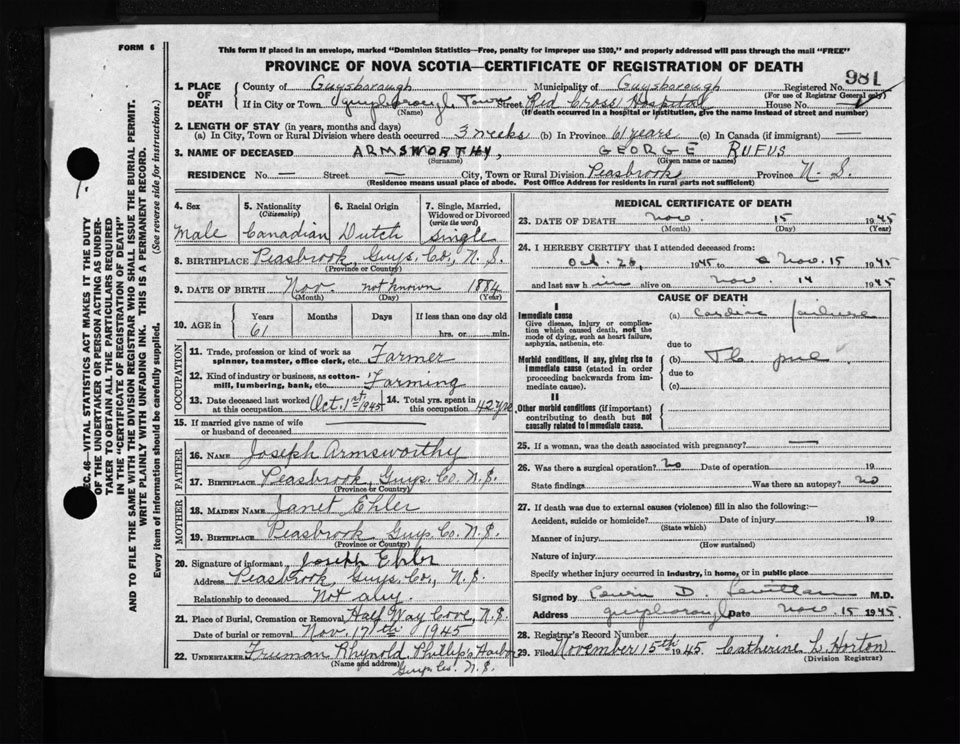 FORM 6
This form if placed in an envelope, marked "Dominion Statistics—Free, penalty for improper use $300," and properly addressed will pass through the mail "FREE"
PROVINCE OF NOVA SCOTIA—CERTIFICATE OF REGISTRATION OF DEATH
981
1. PLACE OF DEATH
County of Guysborough Municipality of Guysborough Registered No.
(For use of Registrar General only)
If in City or Town Guysborough Town Street Red Cross Hospital House No.
(Name) (If death occurred in a hospital or institution, give the name instead of street and number)
2. LENGTH OF STAY (in years, months and days)
(a) In City, Town or Rural Division where death occurred 3 weeks (b) In Province 61 years (c) In Canada (if immigrant) —
3. NAME OF DECEASED ARMSWORTHY, GEORGE RUFUS
(Surname) (Given name or names)
RESIDENCE No. — Street — City, Town or Rural Division Peasbrook Province N. S.
(Residence means usual place of abode. Post Office Address for residents in rural parts not sufficient)
4. Sex Male
5. Nationality (Citizenship) Canadian
6. Racial Origin Dutch
7. Single, Married, Widowed or Divorced (write the word) Single
8. BIRTHPLACE Peasbrook, Guys. Co., N. S.
(Province or Country)
9. DATE OF BIRTH Nov. not known 1884
(Month) (Day) (Year)
10. AGE in Years Months Days If less than one day old
61 hrs. or min.
OCCUPATION
11. Trade, profession or kind of work as spinner, teamster, office clerk, etc. Farmer
12. Kind of industry or business, as cotton-mill, lumbering, bank, etc. Farming
13. Date deceased last worked at this occupation Oct. 1st 1945
14. Total yrs. spent in this occupation 42 yrs
15. If married give name of wife or husband of deceased
FATHER
16. NAME Joseph Armsworthy
17. BIRTHPLACE Peasbrook, Guys. Co. N. S.
(Province or Country)
MOTHER
18. MAIDEN NAME Janet Ehler
19. BIRTHPLACE Peasbrook Guys. Co. N. S.
(Province or Country)
20. Signature of informant Joseph Ehler
Address Peasbrook, Guys. Co., N. S.
Relationship to deceased Not any.
21. Place of Burial, Cremation or Removal Half Way Cove, N. S.
Date of burial or removal Nov. 17th 1945
22. UNDERTAKER Freeman Rhynold Phillips Harbor
(Name and address) Guys. Co. N. S.
MEDICAL CERTIFICATE OF DEATH
23. DATE OF DEATH Nov. 15 1945
(Month) (Day) (Year)
24. I HEREBY CERTIFY that I attended deceased from:
Oct. 26, 1945 to Nov. 15 1945
and last saw him alive on Nov. 14 1945
CAUSE OF DEATH
I
Immediate cause
Give disease, injury or complication which caused death, not the mode of dying, such as heart failure, asphyxia, asthenia, etc.
(a) Cardiac failure
due to
Morbid conditions, if any, giving rise to immediate cause (stated in order proceeding backwards from immediate cause).
(b)
due to
(c)
II
Other morbid conditions (if important) contributing to death but not causally related to immediate cause.
25. If a woman, was the death associated with pregnancy? —
26. Was there a surgical operation? no Date of operation 19
State findings Was there an autopsy? no
27. If death was due to external causes (violence) fill in also the following:—
Accident, suicide or homicide? Date of injury 19
(State which)
Manner of injury
(How sustained)
Nature of injury
Specify whether injury occurred in industry, in home, or in public place
Signed by D. M.D.
Address Guysborough Date Nov. 15 1945
28. Registrar's Record Number
29. Filed November 15th 1945. Catherine L. Horton
(Division Registrar)
SEC. 46—VITAL STATISTICS ACT MAKES IT THE DUTY
OF THE UNDERTAKER OR PERSON ACTING AS UNDER-
TAKER TO OBTAIN ALL THE PARTICULARS REQUIRED
IN THE "CERTIFICATE OF REGISTRATION OF DEATH"
AND TO FILE THE SAME WITH THE DIVISION REGISTRAR WHO SHALL ISSUE THE BURIAL PERMIT.
WRITE PLAINLY WITH UNFADING INK. THIS IS A PERMANENT RECORD.
Every item of information should be carefully supplied. (See reverse side for instructions.)